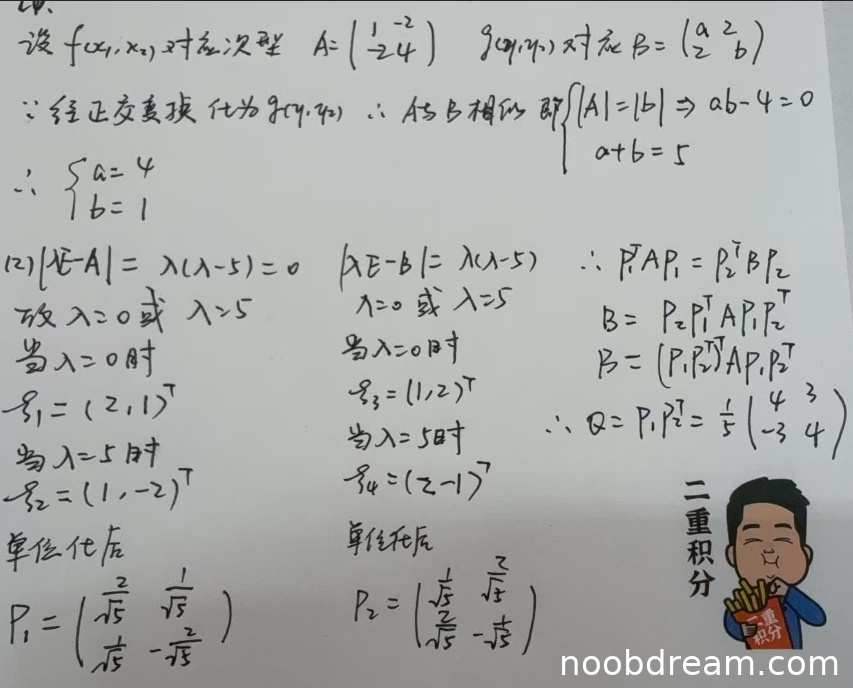 设 f(x₁,x₂) 对应次型 A=(1 -2 -2 4) g(y₁,y₂) 对应 B=(a 2 2 b)
∵ 经正交变换化为 g(y₁,y₂) ∴ A与B相似 即{|A|=|b| ⇒ ab-4=0
a+b=5
∴ {a=4
b=1
(2) |λE-A|= λ(λ-5)=0
故 λ=0 或 λ=5
当 λ=0时
ξ₁=(2,1)ᵀ
当 λ=5时
ξ₂=(1,-2)ᵀ
单位化后
P₁=(2/√5 1/√5 1/√5 -2/√5)
|λE-B|= λ(λ-5)
λ=0 或 λ=5
当 λ=0时
ξ₃=(1,2)ᵀ
当 λ=5时
ξ₄=(2-1)ᵀ
单位化后
P₂=(1/√5 2/√5 2/√5 -1/√5)
∴ P₁ᵀAP₁=P₂ᵀBP₂
B= P₂P₁ᵀAP₁P₂ᵀ
B=(P₁P₂ᵀ)ᵀAP₁P₂ᵀ
∴ Q=P₁P₂ᵀ=1/5(4 3 -3 4)
二重积分
二重
积分
noobdream.com